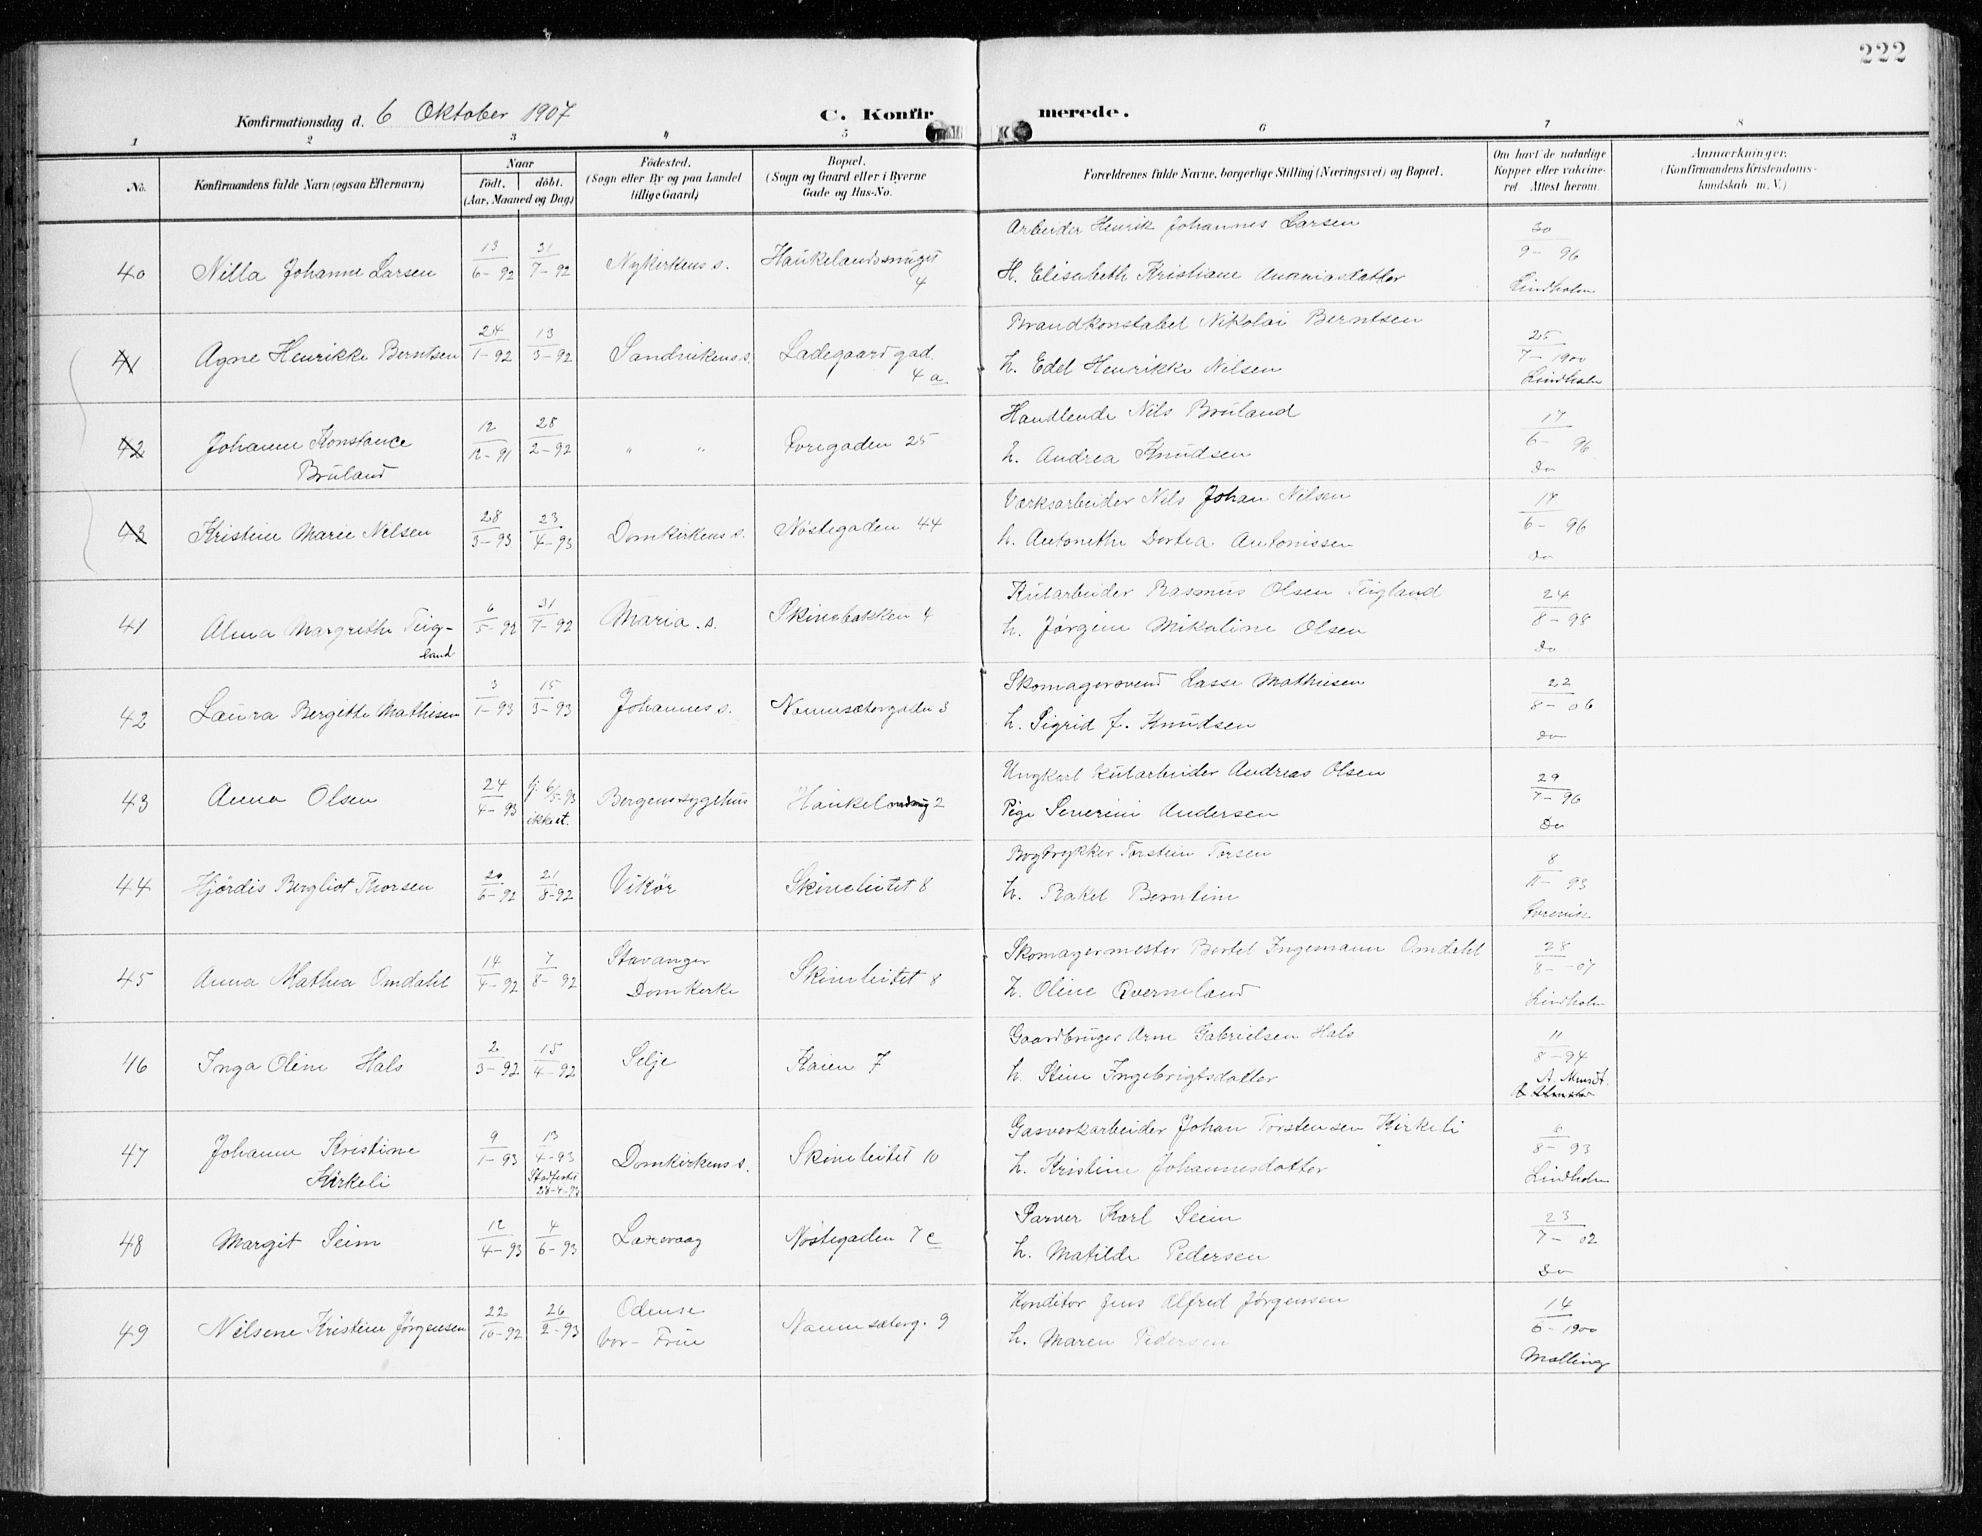 222
Konfirmationsdag d. 6 Oktober 1907 C. Konfirmerede.
1 2 3 " 5 6 7 8
No. Konfirmandens fulde Navn (ogsaa Efternavn) Naar født. døbt. (Aar, Maaned og Dag) Fødested. (Sogn eller By og paa Landet tillige Gaard) Bopæl. (Sogn og Gaard eller i Byerne Gade og Hus-No. Forældrenes fulde Navne, borgerlige Stilling (Næringsvei) og Bopæl. Om havt de naturlige Kopper eller vaccineret. Attest herom. Anmærkninger. (Konfirmandens Kristendomskundskab m. V.)
Arbeider Henrik Johannes Larsen
40 Nilla Johanne Larsen 13/6-92 31/7-92 Nykirkens s. Haukelandssmuget 4 H. Elisabeth Kristiane 30/9-96 Lindholm
Brandkonstabel Nikolai Berntsen
41 Agne Henrikke Berntsen 24/1-92 13/3-92 Sandvikens s. Ladegaardsgad. 4 a. h. Edel Henrikke Nilsen 25/7-1900 Lindholm
Handlende Nils Bruland
42 Johanne Konstance Bruland 12/12-91 28/2-92 " " Øvregaden 25 h. Andrea Knudsen 17/6-96 Do
Værksarbeider Nils Johan Nilsen
43 Kristine Marie Nilsen 28/3-93 23/4-93 Domkirkens s. Nøstegaden 44 h. Antonethe Dortea Antonissen 17/6-96 Do
Rutarbeider Rasmus Olsen Teigland
41 Alma Margrethe Teigland 6/5-92 31/7-92 Maria. s. Skivebakken 4 h. Jørgine Mikaline Olsen 24/8-98 Do
Skomagersvend Lasse Mathiesen
42 Laura Bergitte Mathisen 3/1-93 15/3-93 Johannes s. Nonnesætergaden 3 h. Sigrid f. Knudsen 22/8-06 Do
Ungkarl Rutarbeider Andreas Olsen
43 Anna Olsen 24/4-93 hj. 6/5-93 ikke st. Bergens sygehus Haukelandsmug 2 Pige Severine Andersen 29/7-96 Do
Bogtrykker Torstein Torsen
44 Hjørdis Bergliot Thorsen 20/6-92 21/8-92 Vikør Skiveleitet 8 h. Rakel Berntine 8/11-93
Skomagermester Bertel Ingemann Omdahl
45 Anna Mathea Omdahl 14/4-92 7/8-92 Stavanger Domkirke Skiveleitet 8 h. Oline Qverneland 28/8-07 Lindholm
Gaardbruger Arne Gabrielsen Hals
46 Inga Oline Hals 2/3-92 15/4-92 Selje Kaien 7 h. Stine Ingebrigtsdatter 11/8-94
Gasverkarbeider Johan Torstensen Kirkeli
47 Johanne Kristine Kirkeli 9/1-93 13/4-93 Stadfestet 28-4-93 Domkirkens s. Skiveleitet 10 h. Kristine Johannesdatter 6/8-93 Lindholm
Farver Karl Seim
48 Margit Seim 12/4-93 4/6-93 Laxevaag Nøstegaden 7 c h. Matilde Pedersen 23/7-02 Do
Konditor Jens Alfred Jørgensen
49 Nilsene Kristine Jørgensen 22/10-92 26/2-93 Odense Vor-Frue Nonnesæterg. 9 h. Maren Pedersen 14/6-1900 Malling